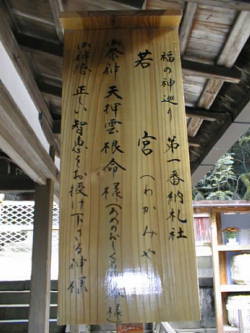 福の神巡り　第一番納札社
若宮（わかみや）
御祭神　天押雲根命様（あめのおしくも　様）
御神徳　正しい智恵をお授け下さる神様